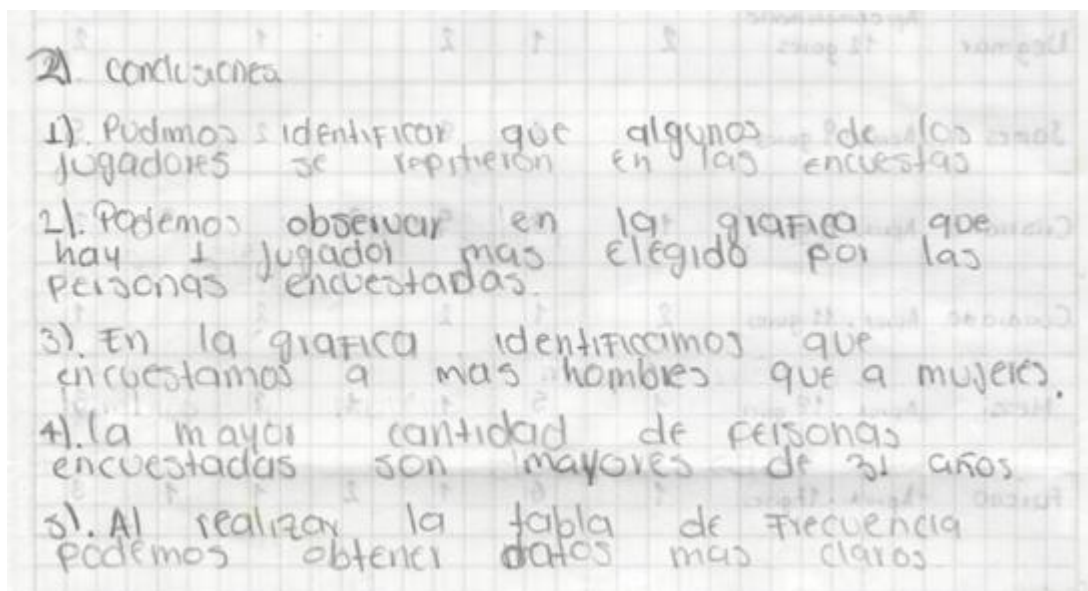 2). Conclusiones
1). Pudimos identificar que algunos de los
jugadores se repitieron en las encuestas
2). Podemos observar en la grafica que
hay 1 jugador mas elegido por las
personas encuestadas.
3). En la grafica identificamos que
encuestamos a mas hombres que a mujeres.
4). la mayor cantidad de personas
encuestadas son mayores de 31 años
5). Al realizar la tabla de frecuencia
podemos obtener datos mas claros